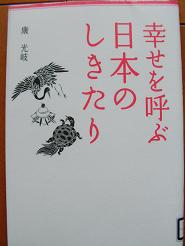 幸せを呼ぶ
日本の
しきたり
康 光岐